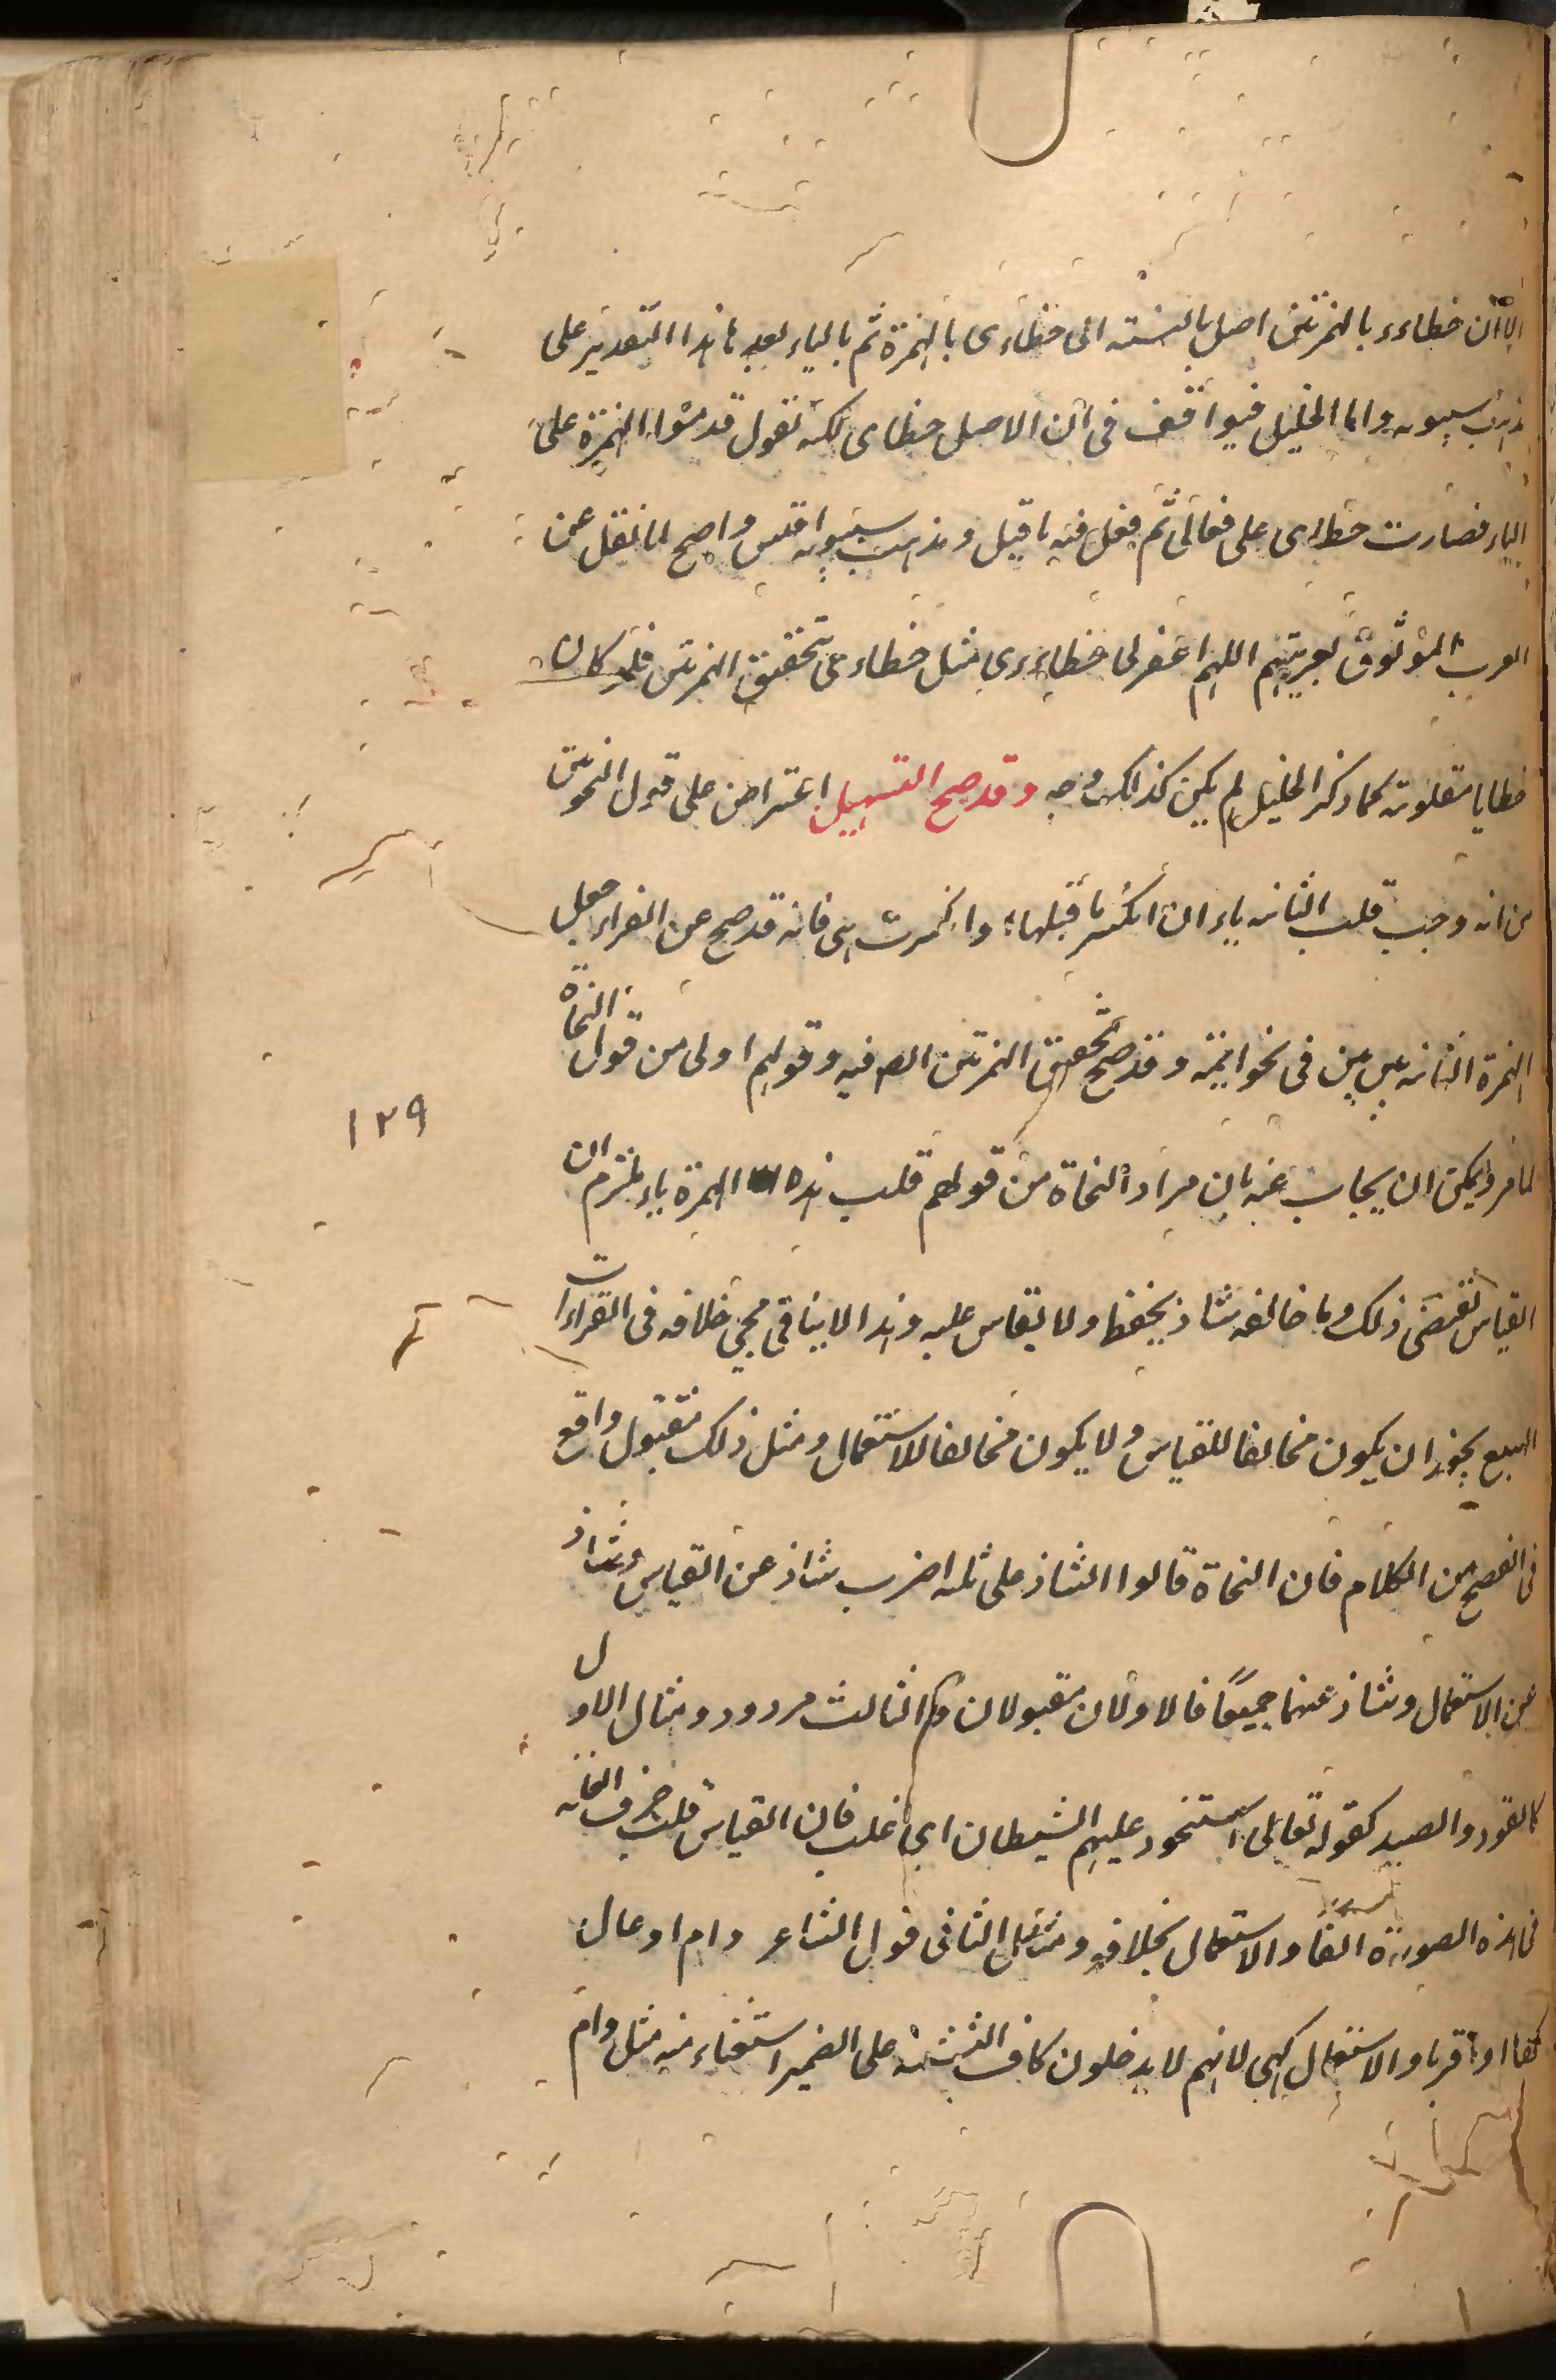 الا ان خطاءء بالهمزتين اصل بالنسبة الى خطاءى بالهمزة ثم بالياء بعدها هذا التقدير على
مذهب سيبويه واما الخليل فيوافقه فى ان الاصل خطاىء لكنه تقول قدموا الهمزة على
الياء فصارت خطاءى على فعالى ثم فعل فيه ما قيل ومذهب سيبويه اقيس واصح لما نقل عن
العرب الموثوق بعربيتهم اللهم اغفر لى خطاءءى مثل خطاععى بتحقيق الهمزتين فلو كان
خطايا مقلوبة كما ذكر الخليل لم يكن كذلك وجه وقد صح التسهيل اعتراض على قول النحويين
من انه وجب قلب الثانية ياء ان انكسر ما قبلها او انكسرت هى فانه قد صح عن القراء جعل
الهمزة الثانية بين بين فى نحو ايمة وقد صح تحقيق الهمزتين ايضا فيه وقولهم اولى من قول النحاة
لما مر ويمكن ان يجاب عنه بان مراد النحاة من قولهم قلب هذه الهمزة ياء ملتزم ان
القياس يقتضى ذلك وما خالفه شاذ يحفظ ولا يقاس عليه وهذا لا ينافى مجئ خلافه فى القراءات
السبع يجوز ان يكون مخالفا للقياس ولا يكون مخالفا للاستعمال ومثل ذلك مقبول واقع
فى الفصيح من الكلام فان النحاة قالوا الشاذ على ثلثة اضرب شاذ عن القياس وشاذ
عن الاستعمال وشاذ عنهما جميعًا فالاولان مقبولان والثالث مردود ومثال الاول
كالقود والصيد كقوله تعالى استحوذ عليهم الشيطان اى غلب فان القياس قلب حرف العلة
فى هذه الصورة الفا والاستعمال بخلافه ومثال الثانى قول الشاعر وام اوعال
كها او اقربا والاستعمال كهى لانهم لا يدخلون كاف التشبيه على الضمير استغناء منه مثل وام
١٢٩